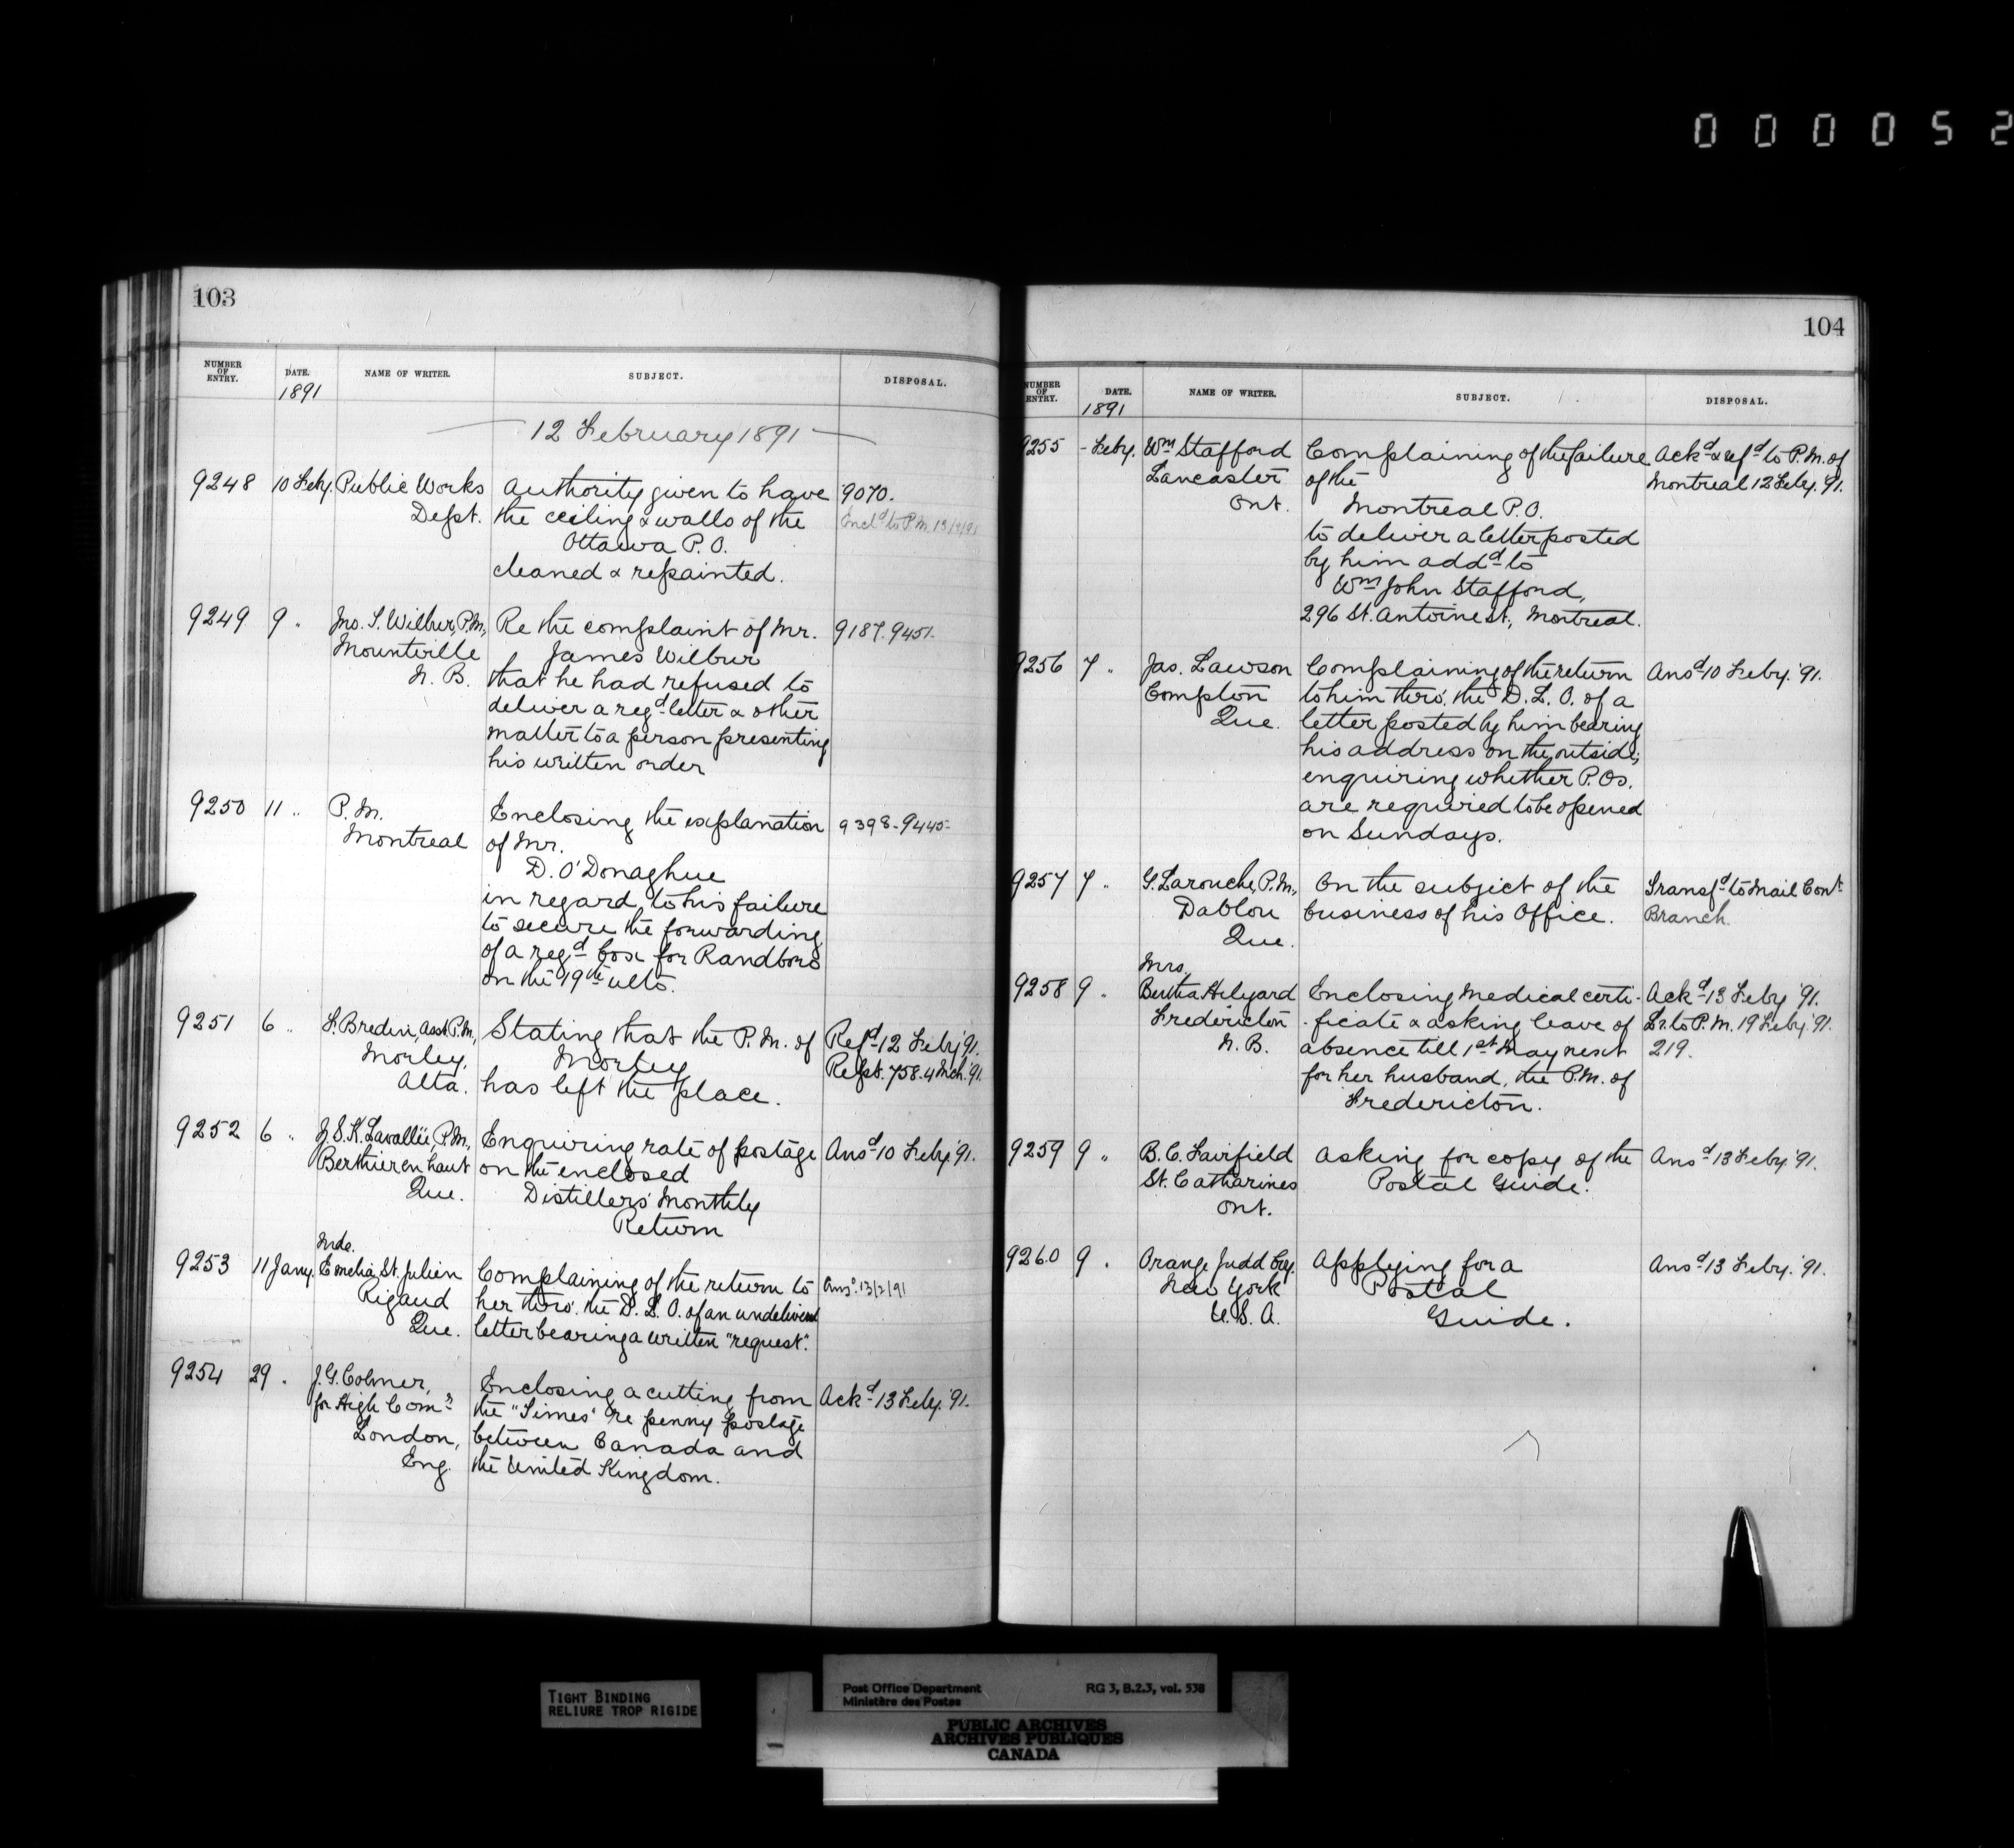 0 0 0 0 5 2
103
NUMBER OF ENTRY.
DATE.
1891
NAME OF WRITER.
SUBJECT.
DISPOSAL.
12 February 1891
9248 10 Feby. Public Works Authority given to have 9070.
Dept. the ceiling & walls of the Encld to P.M. 13/2/91
Ottawa P.O.
cleaned & repainted.
9249 9 " Jno. S. Wilbur, P.M., Re the complaint of Mr. 9187. 9451.
Mountville James Wilbur
N.B. that he had refused to
deliver a regd letter & other
matter to a person presenting
his written order
9250 11 " P.M. Enclosing the explanation 9398-9445-
Montreal of Mr.
D. O'Donaghue
in regard to his failure
to secure the forwarding
of a regd box for Randboro
on the 19th ulto.
9251 6 " F. Bredin, Asst P.M., Stating that the P.M. of Refd 12 Feby '91.
Morley, Morley Rept. 758. 4 Mch. '91.
Alta. has left the place.
9252 6 " J.S.K. Lavallée, P.M., Enquiring rate of postage Ansd 10 Feby '91.
Berthier en haut on the enclosed
Que. Distillers' Monthly
Return
Mde.
9253 11 Jany. Emelia St. Julien Complaining of the return to Ansd 13/2/91
Rigaud her thro'. the D.L.O. of an undelivered
Que. letter bearing a written "request".
9254 29 " J.G. Colmer, Enclosing a cutting from Ackd 13 Feby. '91.
for High Comr the "Times" re penny postage
London, between Canada and
Eng. the United Kingdom.
104
NUMBER OF ENTRY.
DATE.
1891
NAME OF WRITER.
SUBJECT.
DISPOSAL.
9255 - Feby. Wm Stafford Complaining of the failure Ackd & refd to P.M. of
Lancaster of the Montreal 12 Feby. '91.
Ont. Montreal P.O.
to deliver a letter posted
by him addd to
Wm John Stafford,
296 St. Antoine St., Montreal.
9256 7 " Jas. Lawson Complaining of the return Ansd 10 Feby. '91.
Compton to him thro'. the D.L.O. of a
Que. letter posted by him bearing
his address on the outside;
enquiring whether P.Os.
are required to be opened
on Sundays.
9257 7 " G. Larouche, P.M., On the subject of the Transfd to Mail Cont
Dablon business of his Office. Branch.
Que.
Mrs.
9258 9 " Bertha Hilyard Enclosing Medical certi- Ackd 13 Feby '91.
Fredericton -ficate & asking leave of Lr. to P.M. 19 Feby '91.
N.B. absence till 1st May next 219.
for her husband, the P.M. of
Fredericton.
9259 9 " B.C. Fairfield Asking for copy of the Ansd 13 Feby '91.
St. Catharines Postal Guide.
Ont.
9260 9 " Orange Judd Coy. Applying for a Ansd 13 Feby. '91.
New York Postal
U.S.A. Guide.
TIGHT BINDING
RELIURE TROP RIGIDE
Post Office Department RG 3, B.2.3, vol. 538
Ministère des Postes
PUBLIC ARCHIVES
ARCHIVES PUBLIQUES
CANADA